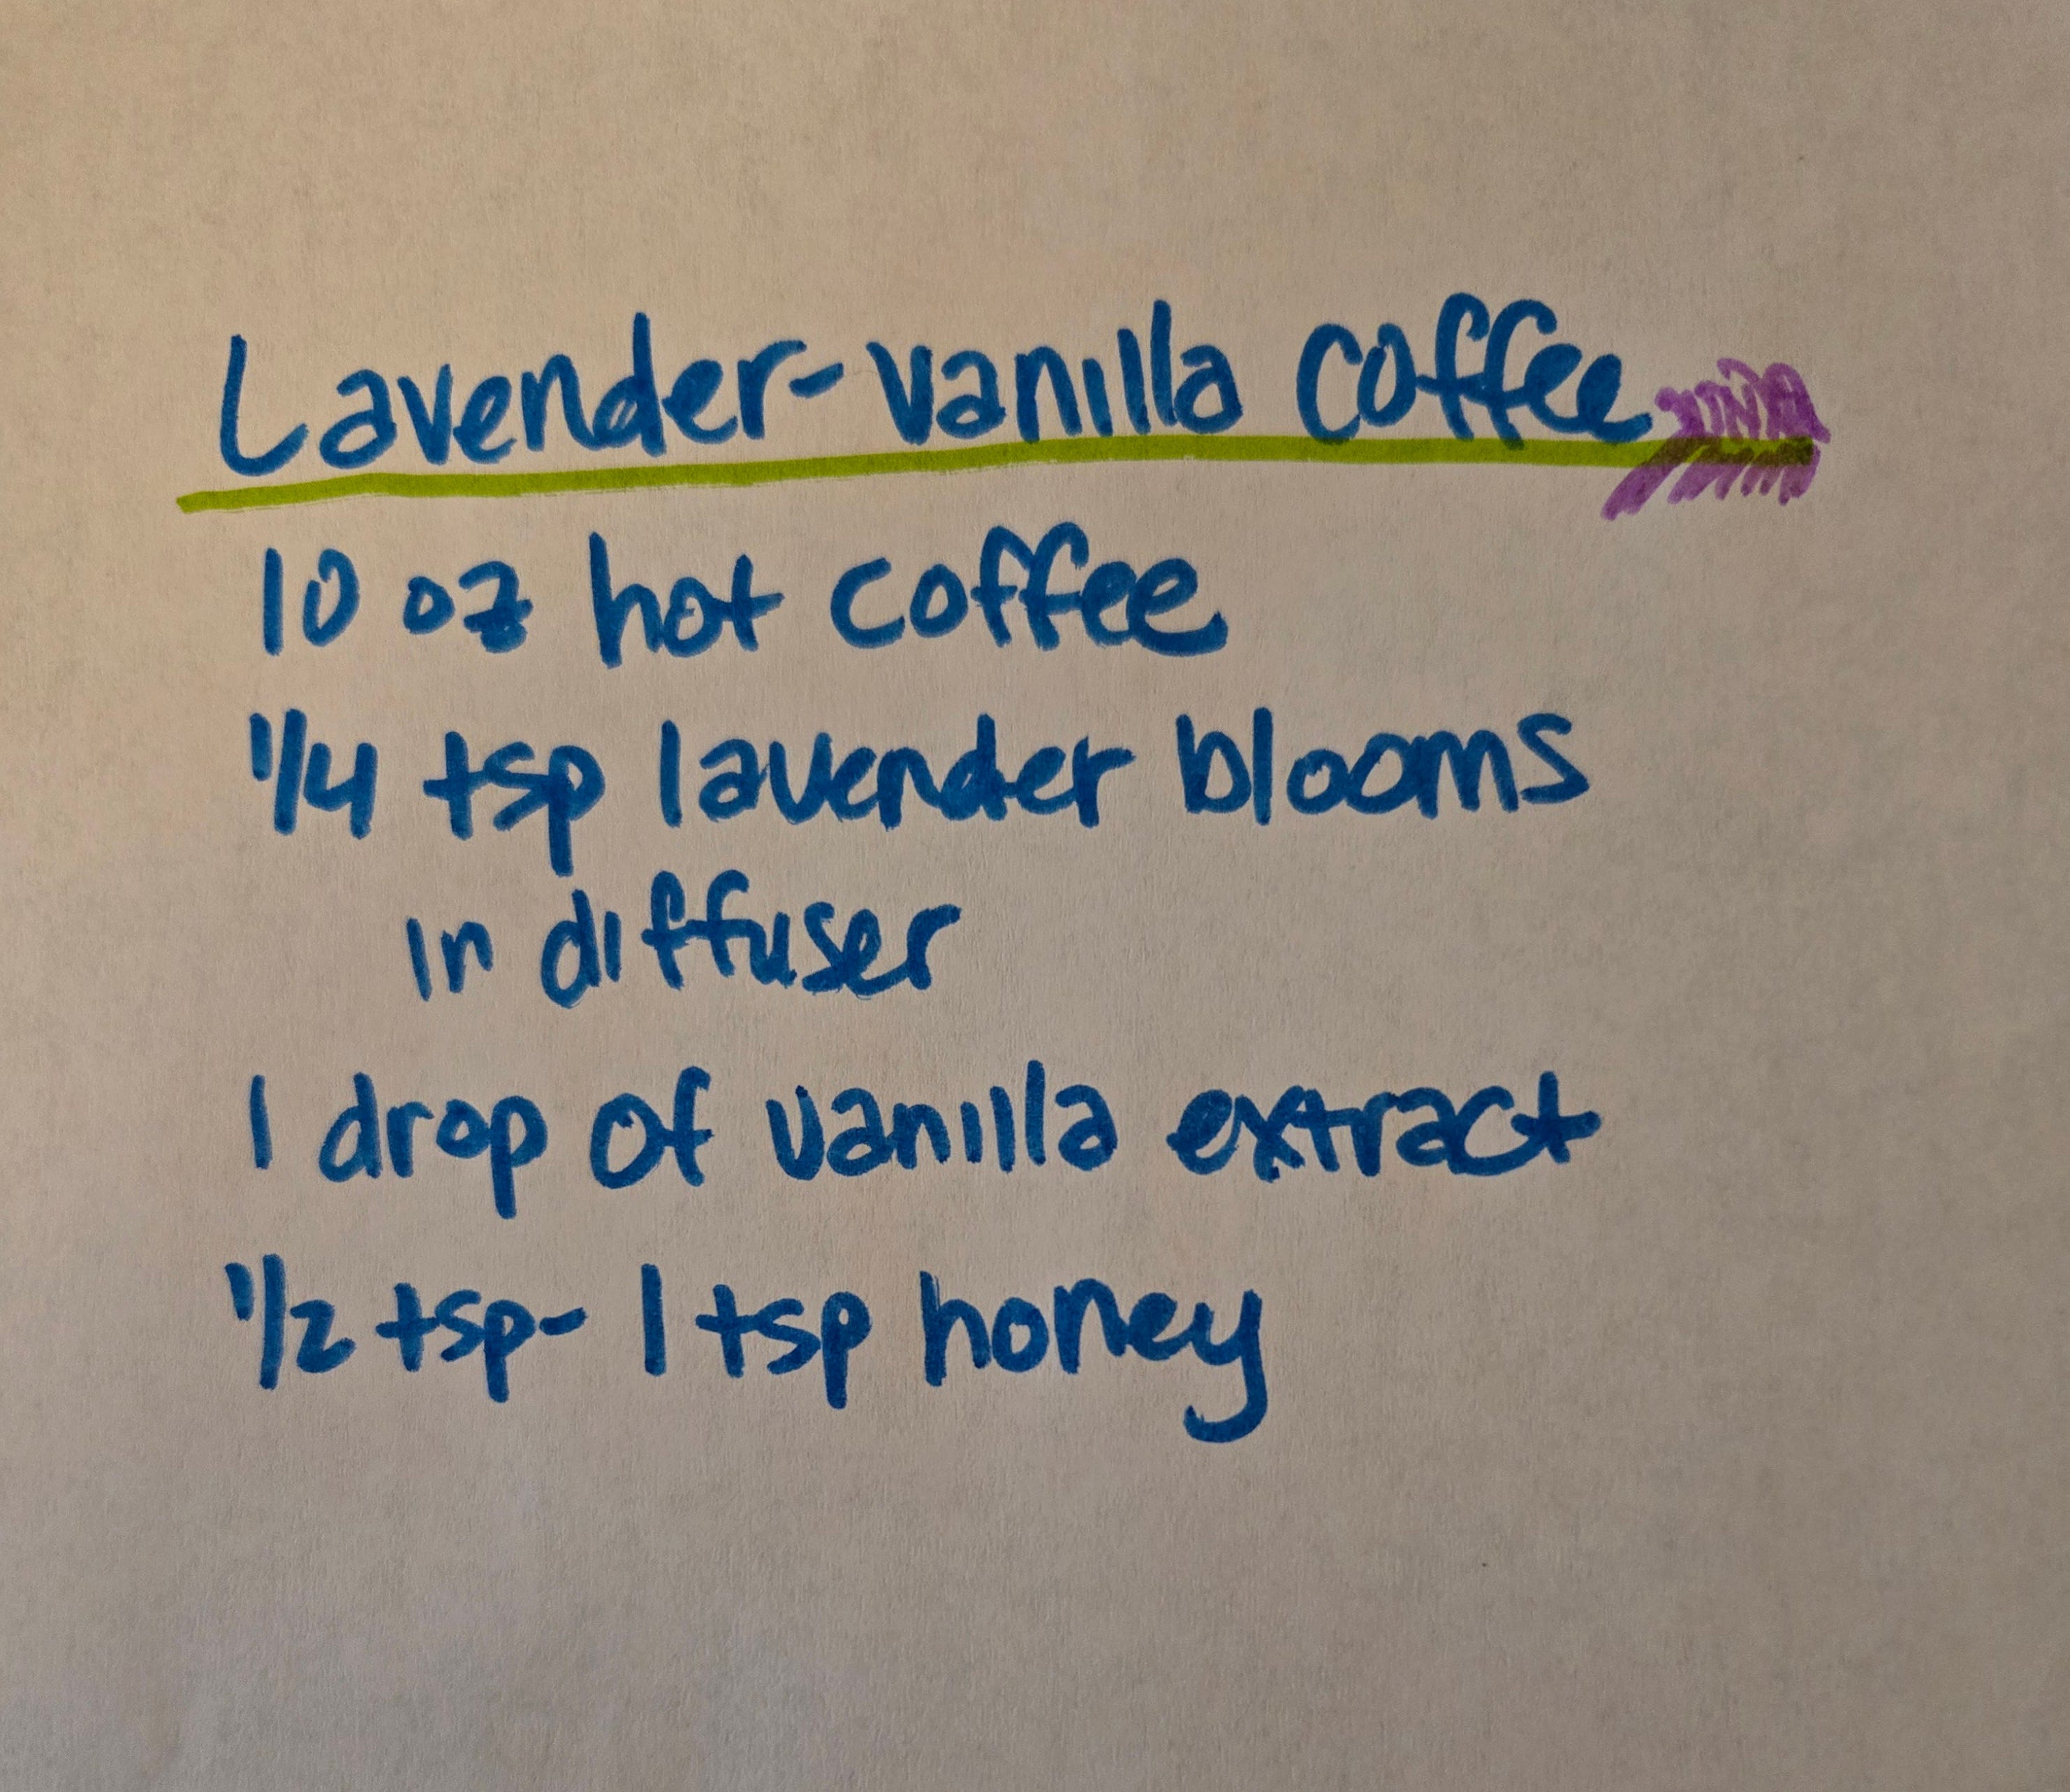 Lavender-vanilla coffee
10 oz hot coffee
1/4 tsp lavender blooms
in diffuser
1 drop of vanilla extract
1/2 tsp- 1 tsp honey